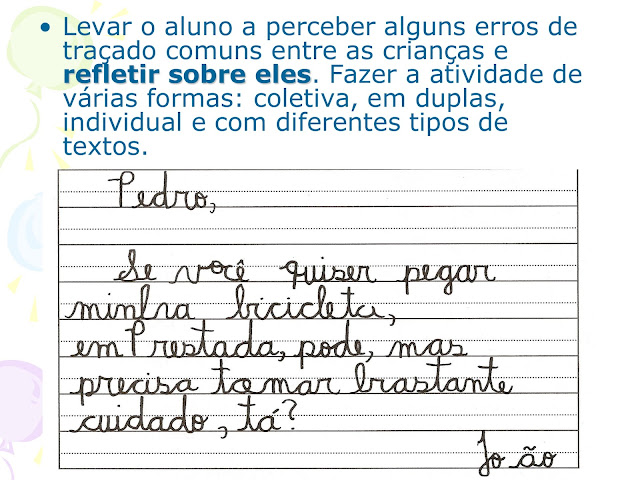 • Levar o aluno a perceber alguns erros de
traçado comuns entre as crianças e
refletir sobre eles. Fazer a atividade de
várias formas: coletiva, em duplas,
individual e com diferentes tipos de
textos.
Pedro,
Se você quiser pegar
minlra bicicleta,
em Prestada, pode, mas
precisa tomar brastante
cuidado, tá?
Jo ão